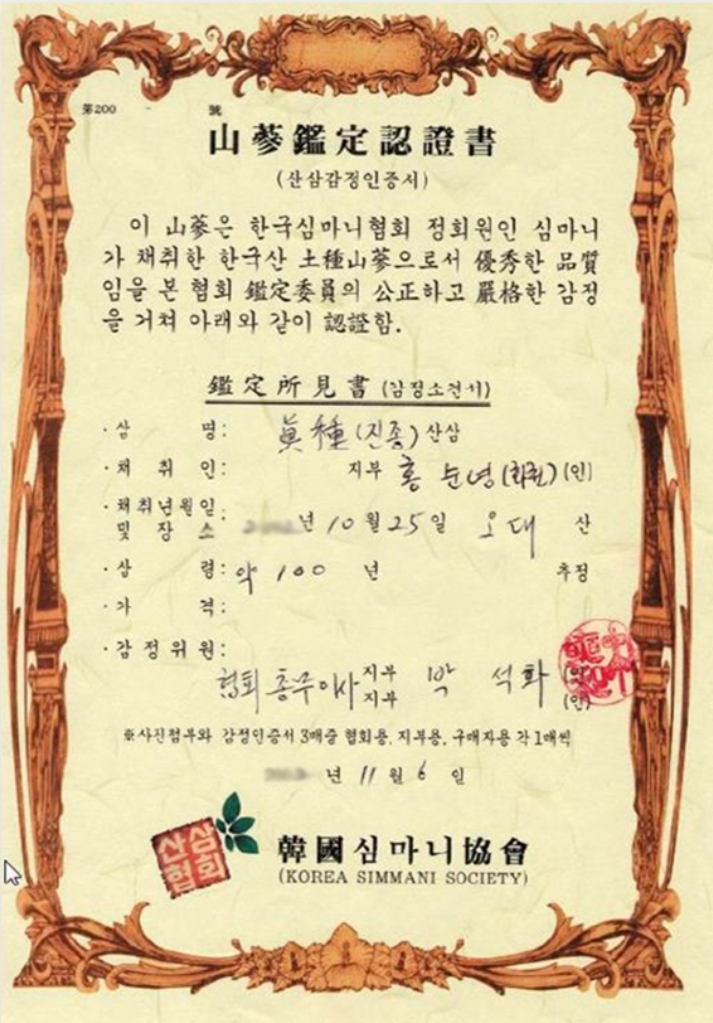 第200 - 號
山蔘鑑定認證書
(산삼감정인증서)
이 山蔘은 한국심마니협회 정회원인 심마니
가 채취한 한국산 土種山蔘으로서 優秀한 品質
임을 본 협회 鑑定委員의 公正하고 嚴格한 감정
을 거쳐 아래와 같이 認證함.
鑑定所見書 (감정소견서)
·삼 명: 眞種(진종) 산삼
·채 취 인: 지부 홍 순녕 (인)
·채취년월일
및 장 소: 년 10월 25일 오대 산
·삼 령: 약 100 년 추정
·가 격:
·감정위원:
협회 총무이사 지부 박 석화 (인)
지부 (인)
※사진첨부와 감정인증서 3매중 협회용, 지부용, 구매자용 각 1매씩
년 11월 6일
산삼
협회
韓國심마니協會
(KOREA SIMMANI SOCIETY)